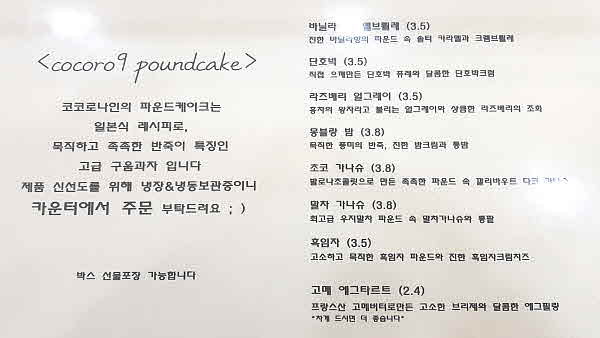 <cocoro9 poundcake>
코코로나인의 파운드케이크는
일본식 레시피로,
묵직하고 촉촉한 반죽이 특징인
고급 구움과자 입니다
제품 신선도를 위해 냉장&냉동보관중이니
카운터에서 주문 부탁드려요 ; )
박스 선물포장 가능합니다
바닐라 (3.5)
진한 바닐라향의 파운드 속 솔티 카라멜과 크렘브륄레
단호박 (3.5)
직접 으깨만든 단호박 퓨레와 달콤한 단호박크림
라즈베리 얼그레이 (3.5)
홍차의 왕자라고 불리는 얼그레이와 상큼한 라즈베리의 조화
몽블랑 밤 (3.8)
묵직한 풍미의 반죽, 진한 밤크림과 통밤
초코 가나슈 (3.8)
발로나초콜릿으로 만든 촉촉한 파운드 속 깔리바우트
말차 가나슈 (3.8)
최고급 우지말차 파운드 속 말차가나슈와 통팥
흑임자 (3.5)
고소하고 묵직한 흑임자 파운드와 진한 흑임자크림치즈
고메 에그타르트 (2.4)
프랑스산 고메버터로만든 고소한 브리제와 달콤한 에그필링
"차게 드시면 더 좋습니다"